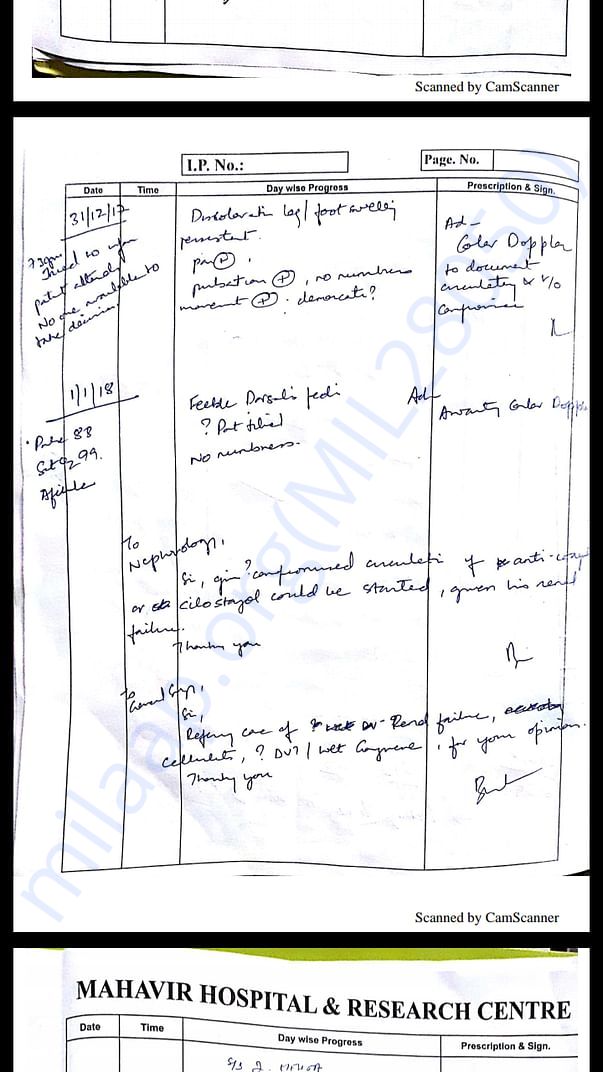 Scanned by CamScanner
I.P. No.:
Page. No.
Date Time Day wise Progress Prescription & Sign.
31/12/17
Discoloration leg/foot swelling
persistent.
pain (+).
pulsation (+), no numbness
movement (+). demarcate?
7:30pm
Tried to
patient attender
No one available to
take decision
Ad-
Color Doppler
to document
circulation & r/o
compromise
1/1/18
Pulse 83
Sat O2 99.
Afebrile
Feeble Dorsalis Pedi
? Post tibial
No numbness.
Ad-
Awaiting Color Doppler
To
Nephrology,
Sir, given ? compromised circulation if anti-coag
or cilostazol could be started, given his renal
failure.
Thank you
To
General Surg,
Sir,
Refering case of Renal failure,
cellulitis, ? DVT / wet Gangrene, for your opinion.
Thank you
Scanned by CamScanner
MAHAVIR HOSPITAL & RESEARCH CENTRE
Date Time Day wise Progress Prescription & Sign.
milaap.org(MIL280950)